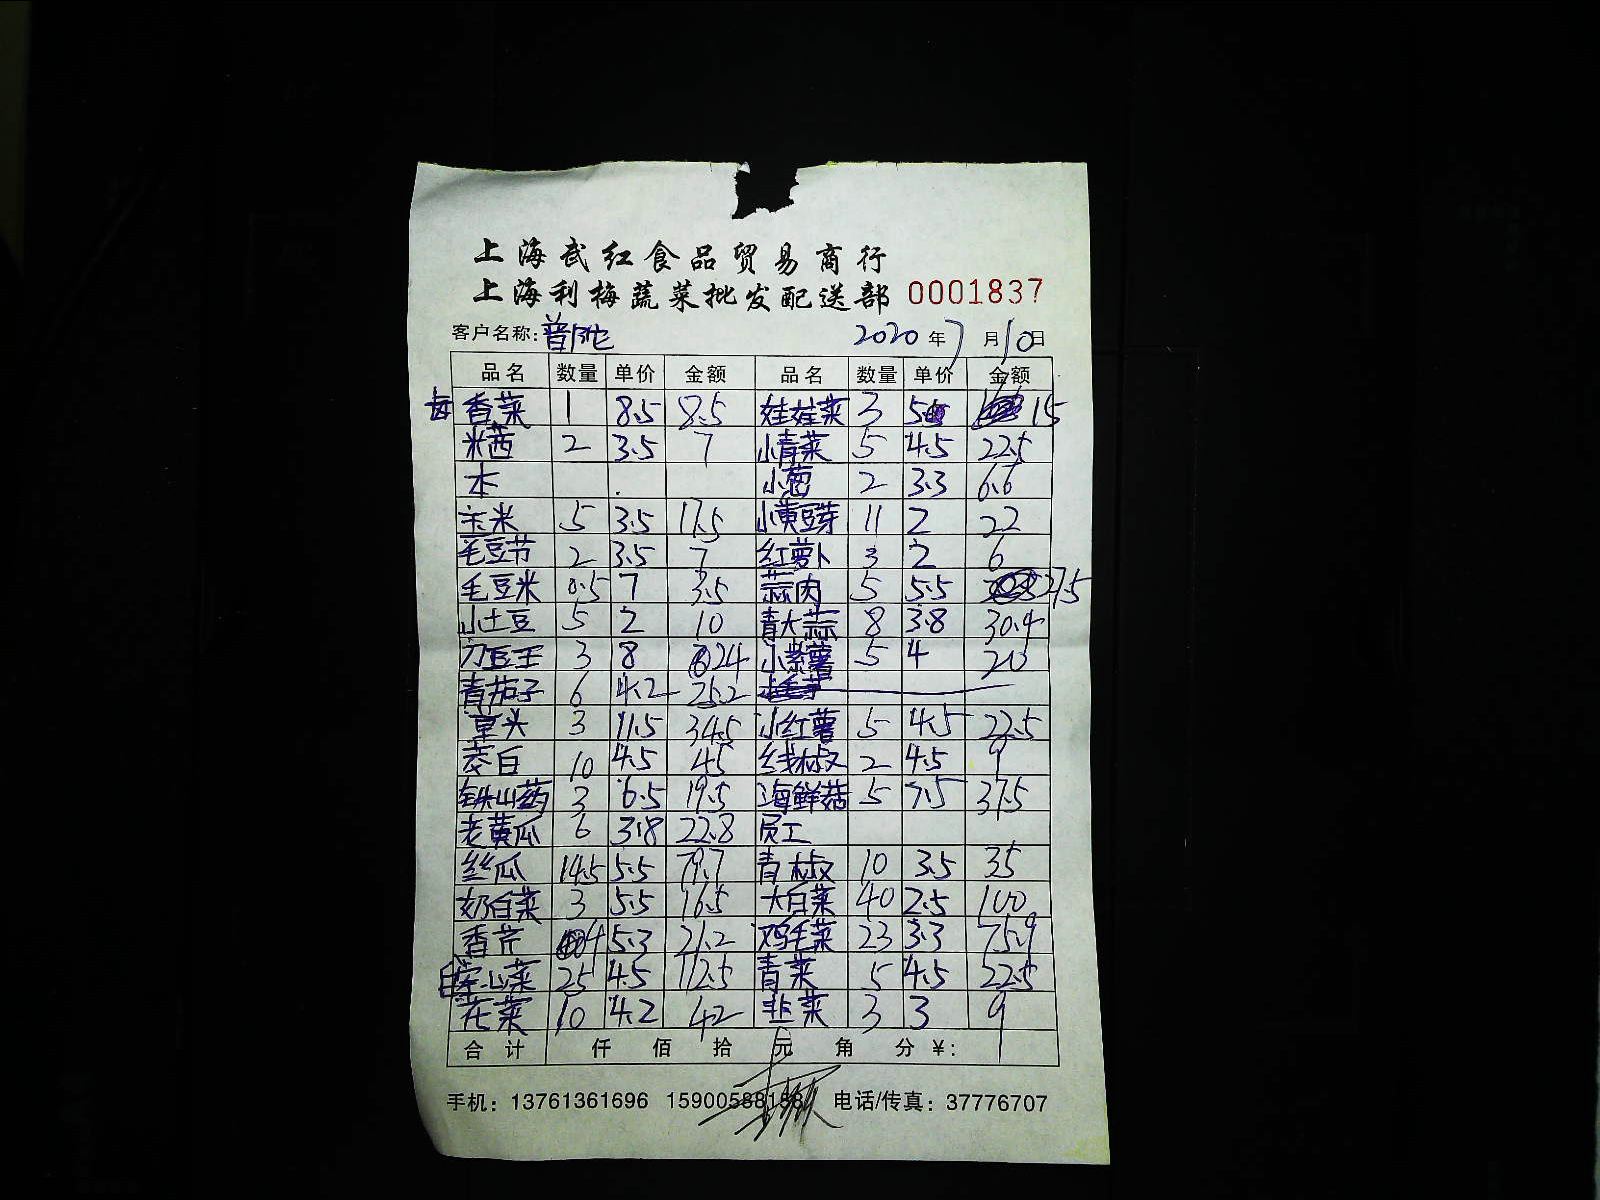 上海武红食品贸易商行
上海利梅蔬菜批发配送部 0001837
客户名称:普陀 2020年7月10日
品名 数量 单价 金额 品名 数量 单价 金额
香菜 1 8.5 8.5 娃娃菜 3 5 15
米苋 2 3.5 7 小青菜 5 4.5 22.5
本 小葱 2 3.3 6.6
玉米 5 3.5 17.5 小黄豆芽 11 2 22
毛豆节 2 3.5 7 红萝卜 3 2 6
毛豆米 0.5 7 3.5 蒜肉 5 5.5 27.5
小土豆 5 2 10 青大蒜 8 3.8 30.4
刀豆王 3 8 24 小紫薯 5 4 20
青茄子 6 4.2 25.2
草头 3 11.5 34.5 小红薯 5 4.5 22.5
茭白 10 4.5 45 线椒 2 4.5 9
铁山药 3 6.5 19.5 海鲜菇 5 7.5 37.5
老黄瓜 6 3.8 22.8 员工
丝瓜 14.5 5.5 79.7 青椒 10 3.5 35
奶白菜 3 5.5 16.5 大白菜 40 2.5 100
香芹 4 5.3 21.2 鸡毛菜 23 3.3 75.9
白空心菜 25 4.5 112.5 青菜 5 4.5 22.5
花菜 10 4.2 42 韭菜 3 3 9
合计 仟 佰 拾 元 角 分 ¥:
手机: 13761361696 15900588158 电话/传真: 37776707